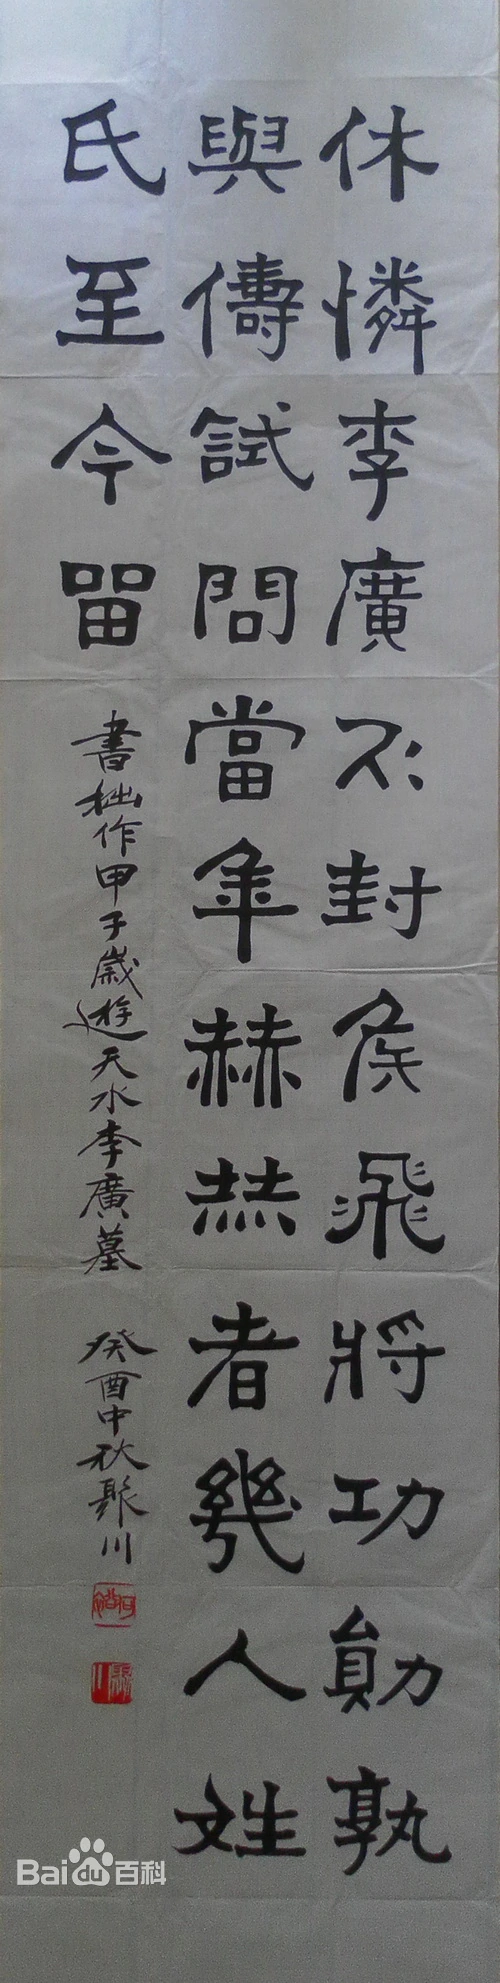 休憐李廣不封侯飛將功勛孰
與儔試問當年赫赫者幾人姓
氏至今留
書拙作甲子歲遊天水李廣墓 癸酉中秋聚川
Bai百科